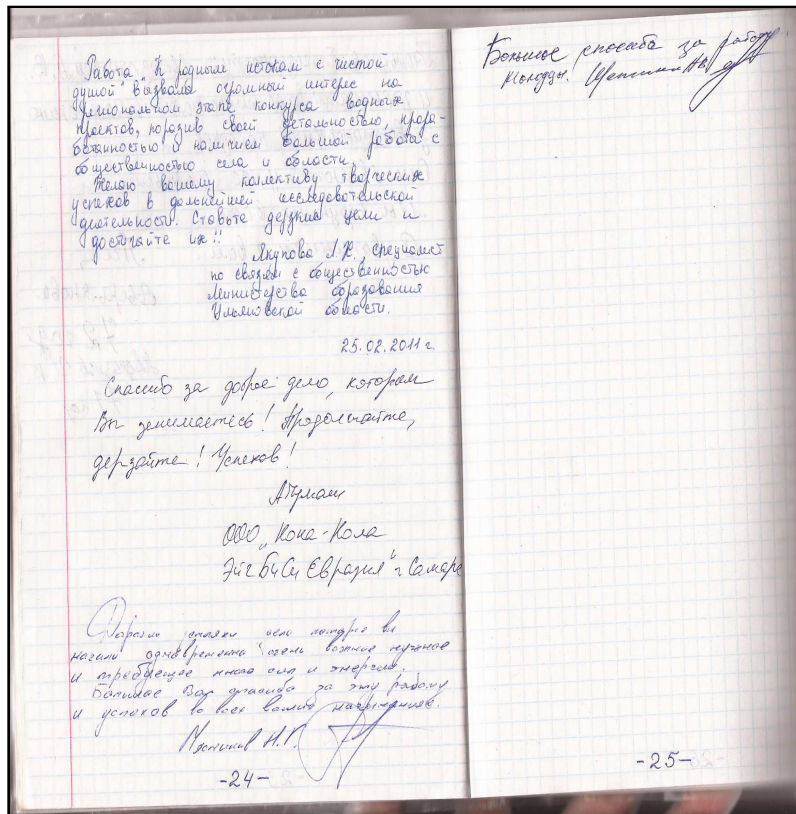 Работа "К родным истокам с чистой
душой" вызвала огромный интерес на
региональном этапе конкурса водных
проектов, поразив своей детальностью, прора-
ботанностью и наличием большой работы с
общественностью села и области.
Желаю вашему коллективу творческих
успехов в дальнейшей исследовательской
деятельности. Ставьте дерзкие цели и
достигайте их!!
Якупова Л.К., специалист
по связям с общественностью
Министерства образования
Ульяновской области.
25.02.2011 г.
Спасибо за доброе дело, которым
Вы занимаетесь! Продолжайте,
дерзайте! Успехов!
ООО "Кока-Кола
ЭйчБиСи Евразия" г Самара
Дорогие земляки дело которое вы
начали одновременно очень важное нужное
и требующее много сил и энергии.
Большое Вам спасибо за эту работу
и успехов во всех ваших начинаниях.
Н.Г.
-24-
Большое спасиба за работу
Молодцы.
-25-